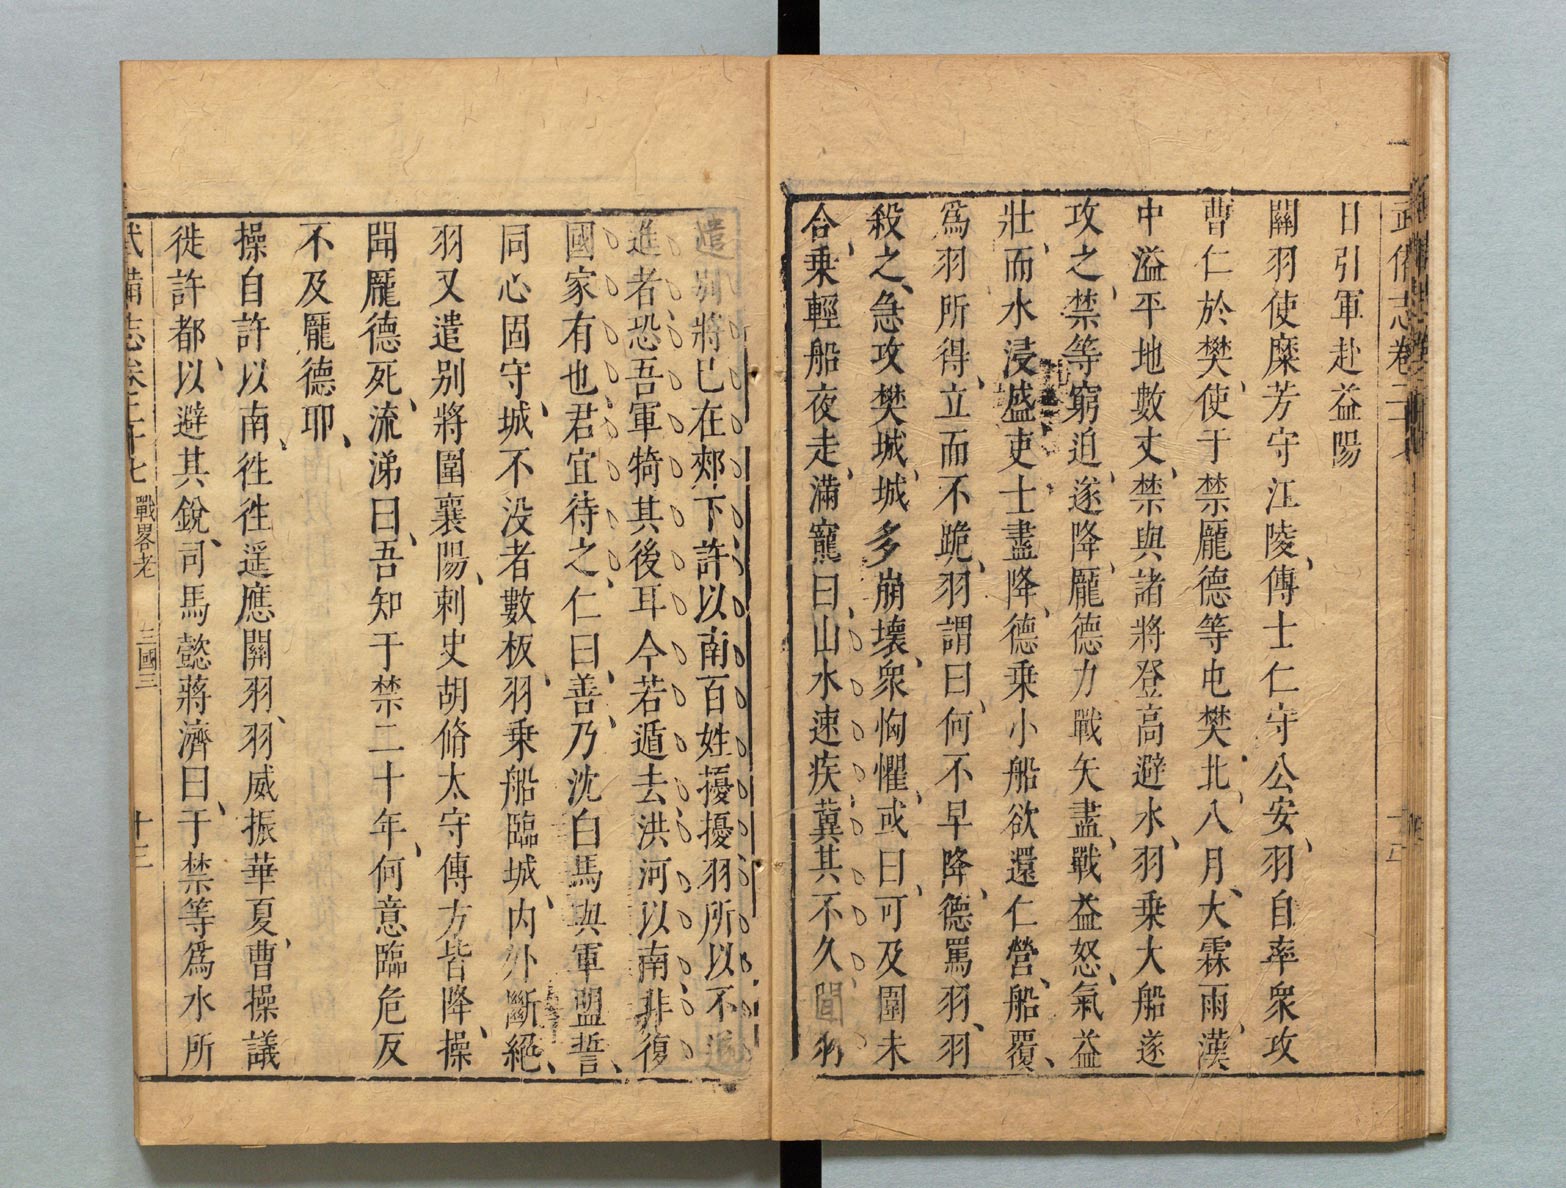 武備志卷二十
日引軍赴益陽
關羽使糜芳守江陵傳士仁守公安羽自率衆攻
曹仁於樊使于禁龐德等屯樊北八月大霖雨漢
中溢平地數丈禁與諸將登高避水羽乗大船遂
攻之禁等窮迫遂降龐德力戰矢盡戰益怒氣益
壯而水浸盛吏士盡降德乗小船欲還仁營船覆
爲羽所得立而不跪羽謂曰何不早降德罵羽羽
殺之急攻樊城城多崩壞衆恟懼或曰可及圍未
合乗輕船夜走滿寵曰山水速疾冀其不久聞羽
遣别將已在郟下許以南百姓擾擾羽所以不遂
進者恐吾軍犄其後耳今若遁去洪河以南非復
國家有也君宜待之仁曰善乃沈白馬與軍盟誓
同心固守城不没者數板羽乗船臨城内外斷絕
羽又遣别將圍襄陽刺史胡脩太守傅方皆降操
聞龐德死流涕曰吾知于禁二十年何意臨危反
不及龐德耶
操自許以南徃徃遥應關羽羽威振華夏曹操議
徙許都以避其銳司馬懿蔣濟曰于禁等爲水所
武備志卷二十七 戰畧考 三國三 十三